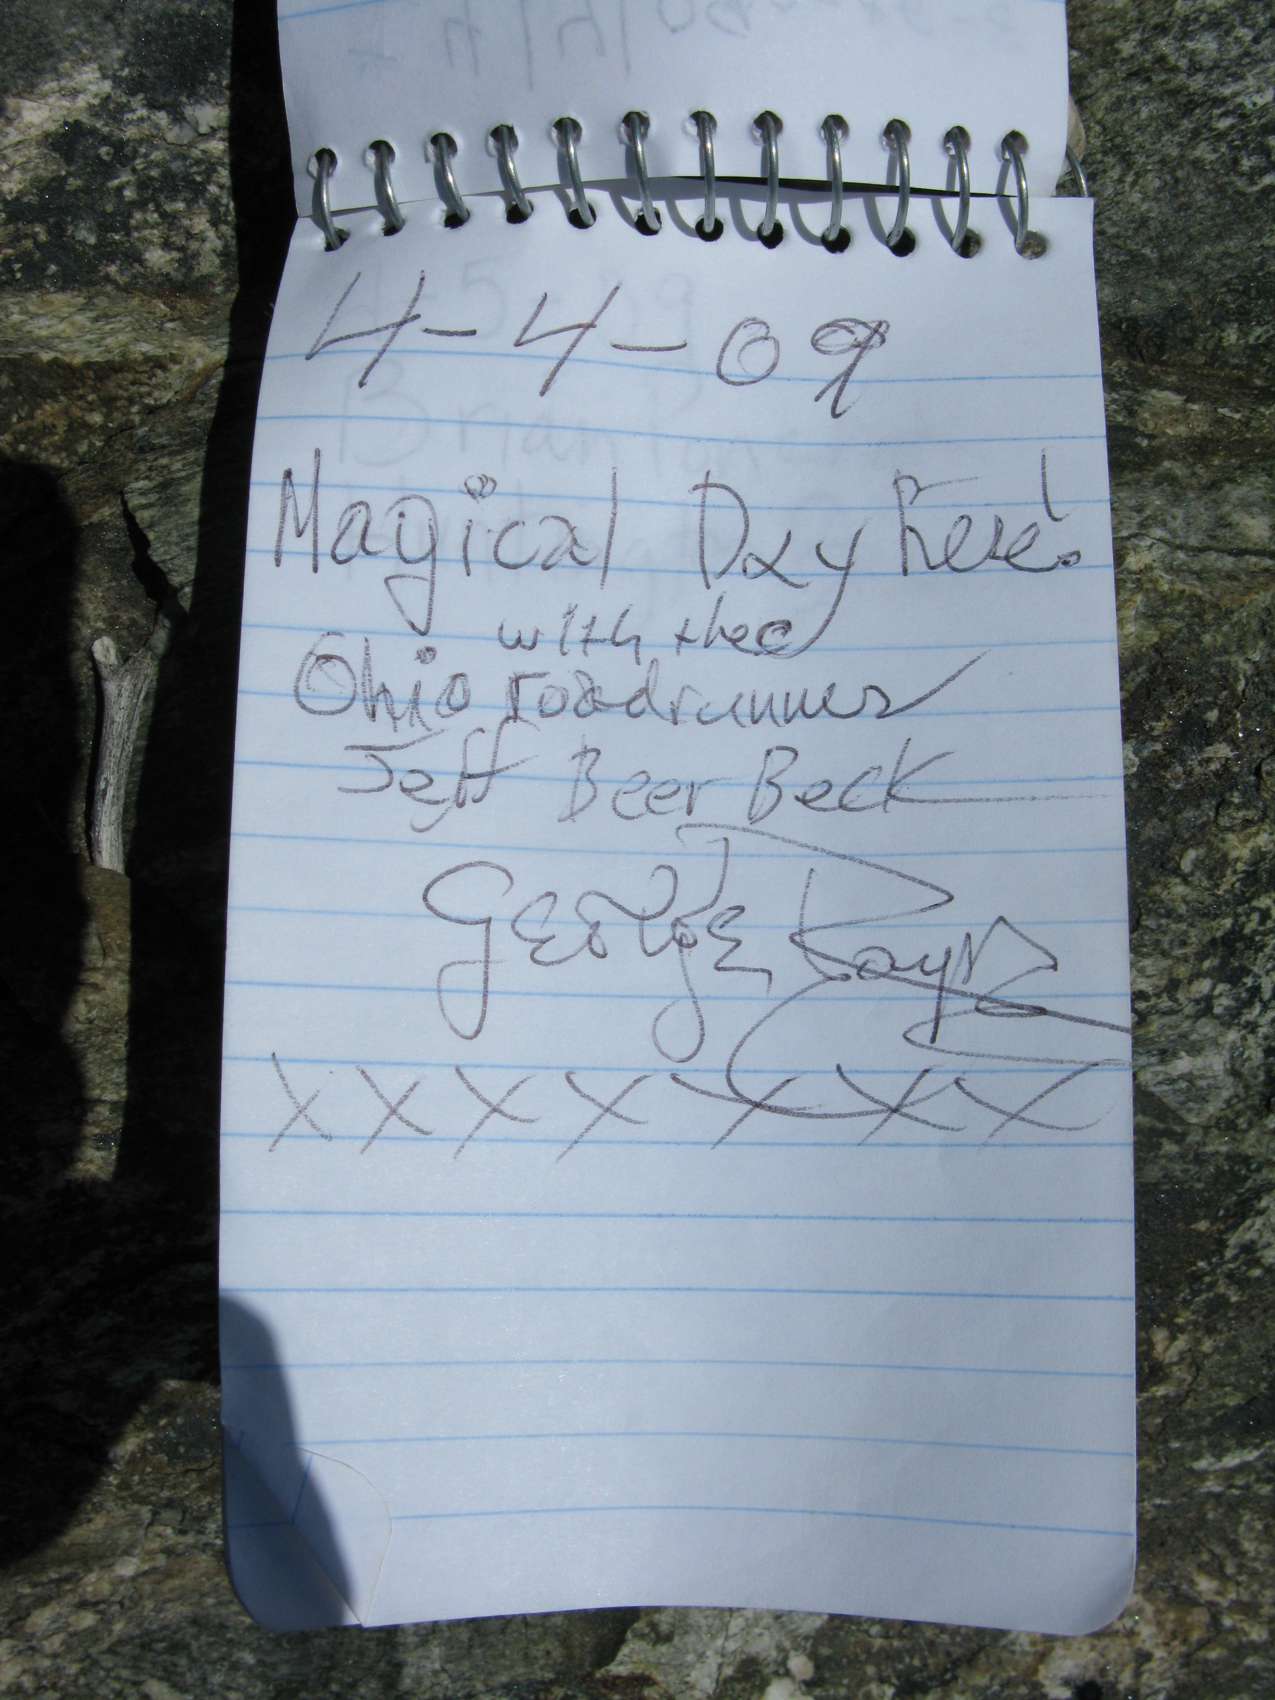 4-4-09
Magical Day here!
with the
Ohio roadrunner
Jeff Beer Beck
George
X X X X X X X